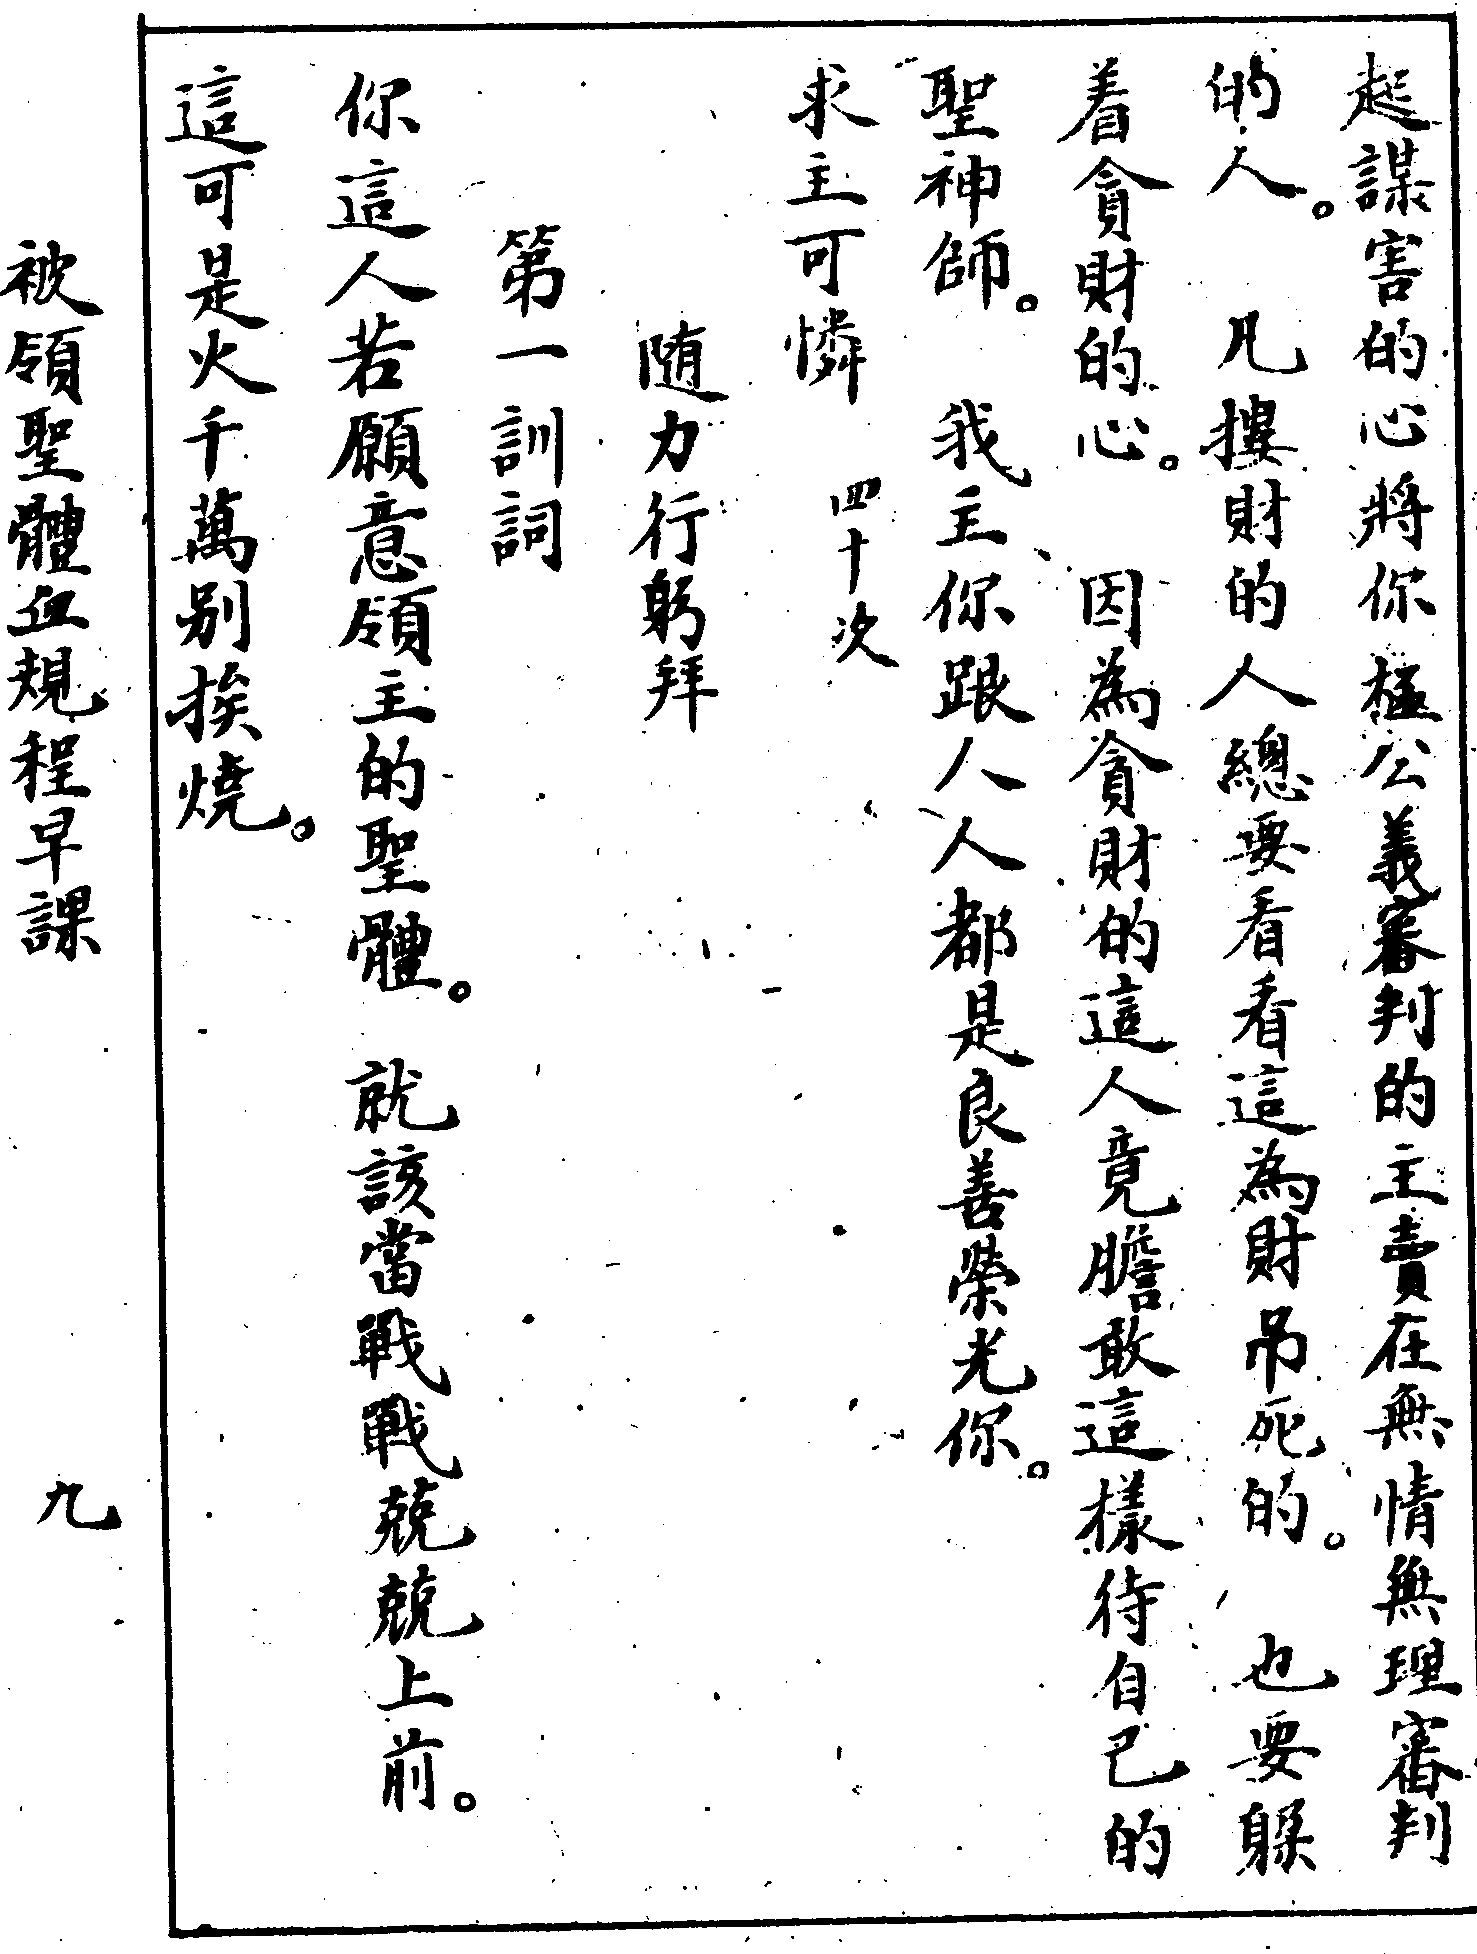 起謀害的心將你極公義審判的主賣在無情無理審判
的人。凡摟財的人總要看看這為財吊死的。也要躲
着貪財的心。因為貪財的這人竟膽敢這樣待自己的
聖神師。我主你跟人人都是良善榮光你。
求主可憐 四十次
随力行躬拜
第一訓詞
你這人若願意領主的聖體。就該當戰戰兢兢上前。
這可是火千萬别挨燒。
被領聖體血規程早課 九